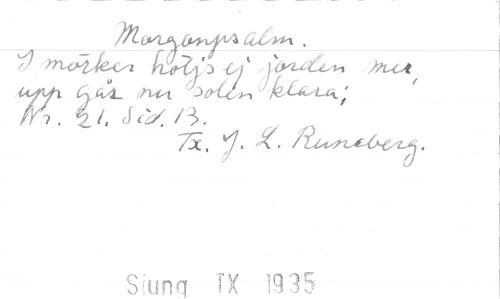 Morgonpsalm.
I mörker höljs ej jorden mer,
upp går nu solen klara;
Nr. 21. Sid. 13.
Tx. J. L. Runeberg.
Sjung TX 1935